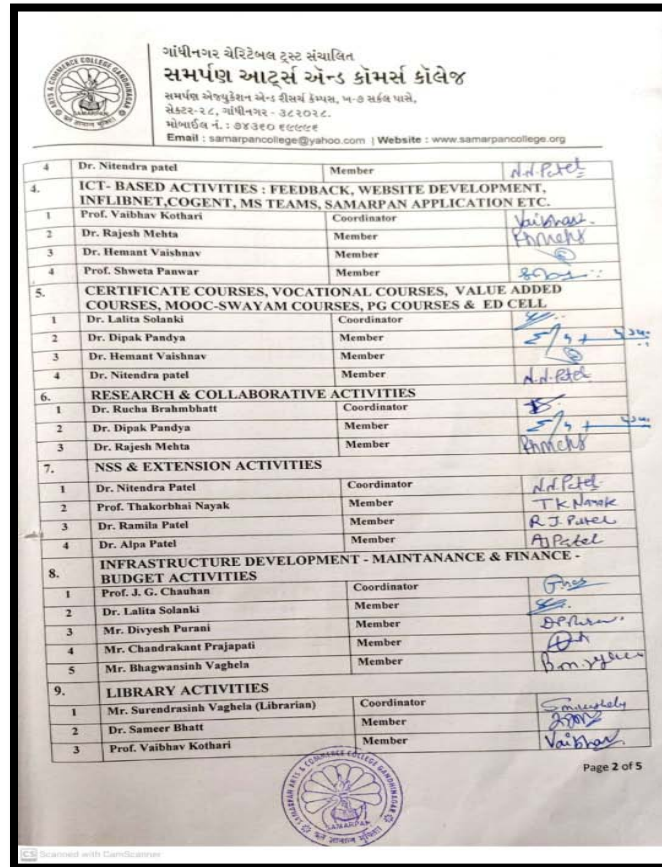 ગાંધીનગર ચેરિટેબલ ટ્રસ્ટ સંચાલિત
સમર્પણ આર્ટ્સ ઍન્ડ કૉમર્સ કૉલેજ
સમર્પણ એજ્યુકેશન એન્ડ રીસર્ચ કેમ્પસ, ખ-૭ સર્કલ પાસે,
સેક્ટર-૨૮, ગાંધીનગર - ૩૮૨૦૨૮.
મોબાઈલ નં. : ૭૪૩૬૦ ૬૯૯૯૬
Email : samarpancollege@yahoo.com | Website : www.samarpancollege.org
4 Dr. Nitendra patel Member N.N.Patel
4. ICT- BASED ACTIVITIES : FEEDBACK, WEBSITE DEVELOPMENT,
INFLIBNET,COGENT, MS TEAMS, SAMARPAN APPLICATION ETC.
1 Prof. Vaibhav Kothari Coordinator Vaibhav
2 Dr. Rajesh Mehta Member
3 Dr. Hemant Vaishnav Member
4 Prof. Shweta Panwar Member
5. CERTIFICATE COURSES, VOCATIONAL COURSES, VALUE ADDED
COURSES, MOOC-SWAYAM COURSES, PG COURSES & ED CELL
1 Dr. Lalita Solanki Coordinator
2 Dr. Dipak Pandya Member
3 Dr. Hemant Vaishnav Member
4 Dr. Nitendra patel Member N.N.Patel
6. RESEARCH & COLLABORATIVE ACTIVITIES
1 Dr. Rucha Brahmbhatt Coordinator
2 Dr. Dipak Pandya Member
3 Dr. Rajesh Mehta Member
7. NSS & EXTENSION ACTIVITIES
1 Dr. Nitendra Patel Coordinator N.N.Patel
2 Prof. Thakorbhai Nayak Member TK Nayak
3 Dr. Ramila Patel Member R J Patel
4 Dr. Alpa Patel Member A Patel
8. INFRASTRUCTURE DEVELOPMENT - MAINTANANCE & FINANCE -
BUDGET ACTIVITIES
1 Prof. J. G. Chauhan Coordinator
2 Dr. Lalita Solanki Member
3 Mr. Divyesh Purani Member
4 Mr. Chandrakant Prajapati Member
5 Mr. Bhagwansinh Vaghela Member
9. LIBRARY ACTIVITIES
1 Mr. Surendrasinh Vaghela (Librarian) Coordinator
2 Dr. Sameer Bhatt Member
3 Prof. Vaibhav Kothari Member Vaibhav
SAMARPAN ARTS & COMMERCE COLLEGE GANDHINAGAR
SAMARPAN
Page 2 of 5
CS Scanned with CamScanner